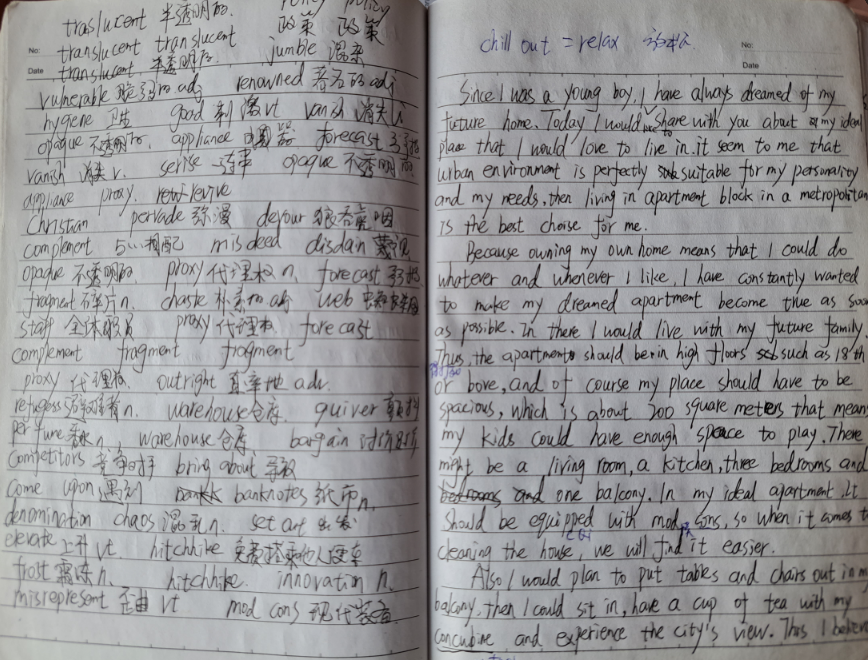 policy policy
traslucent 半透明的.
translucent translucent 政策 政策
No:
translucent 半透明的. jumble 混杂
Date
vulnerable 脆弱的 adj renowned 著名的 adj
hygiene 卫生 good 刺激 vt vanish 消失 i
opaque 不透明的, appliance 电器 forecast 预报
vanish 消失 v. serise 一连串 opaque 不透明的
appliance proxy. revive
Christian pervade 弥漫 devour 狼吞虎咽
complement 与…相配 misdeed disdain 蔑视
opaque 不透明的 proxy 代理权 n, forecast 预报
fragment 碎片 n. chaste 朴素的 adj web
staff 全体职员 proxy 代理权 forecast
complement fragment fragment
proxy 代理权. outright 直率地 adv.
refugess n. warehouse 仓库. quiver
perfume n, warehouse 仓库 bargain 讨价还价
competitors 竞争对手 bring about 导致
come upon 遇到 banknotes 纸币 n.
denomination chaos 混乱 n. set out 出发
elevate 上升 vt. hitchhike 免费搭乘他人便车
frost 霜冻 n. hitchhike. innovation n.
misrepresent 歪曲 vt mod cons 现代装备
chill out = relax 放松
No:
Date
Since I was a young boy, I have always dreamed of my
future home. Today I would share with you about my ideal
place that I would love to live in. it seem to me that
urban environment is perfectly suitable for my personality
and my needs, then living in apartment block in a metropolitan
is the best choise for me.
Because owning my own home means that I could do
whatever and whenever I like, I have constantly wanted
to make my dreamed apartment become true as soon
as possible. In there I would live with my future family.
Thus, the apartment should be in high floors such as 18th
or bove, and of course my place should have to be
spacious, which is about 200 square meters that mean
my kids could have enough space to play. There
might be a living room, a kitchen, three bedrooms and
one balcony. In my ideal apartment. It
should be equipped with mod cons, so when it comes to
cleaning the house, we will find it easier.
Also I would plan to put tables and chairs out in my
balcony. then I could sit in, have a cup of tea with my
concubine and experience the city's view. This I believe